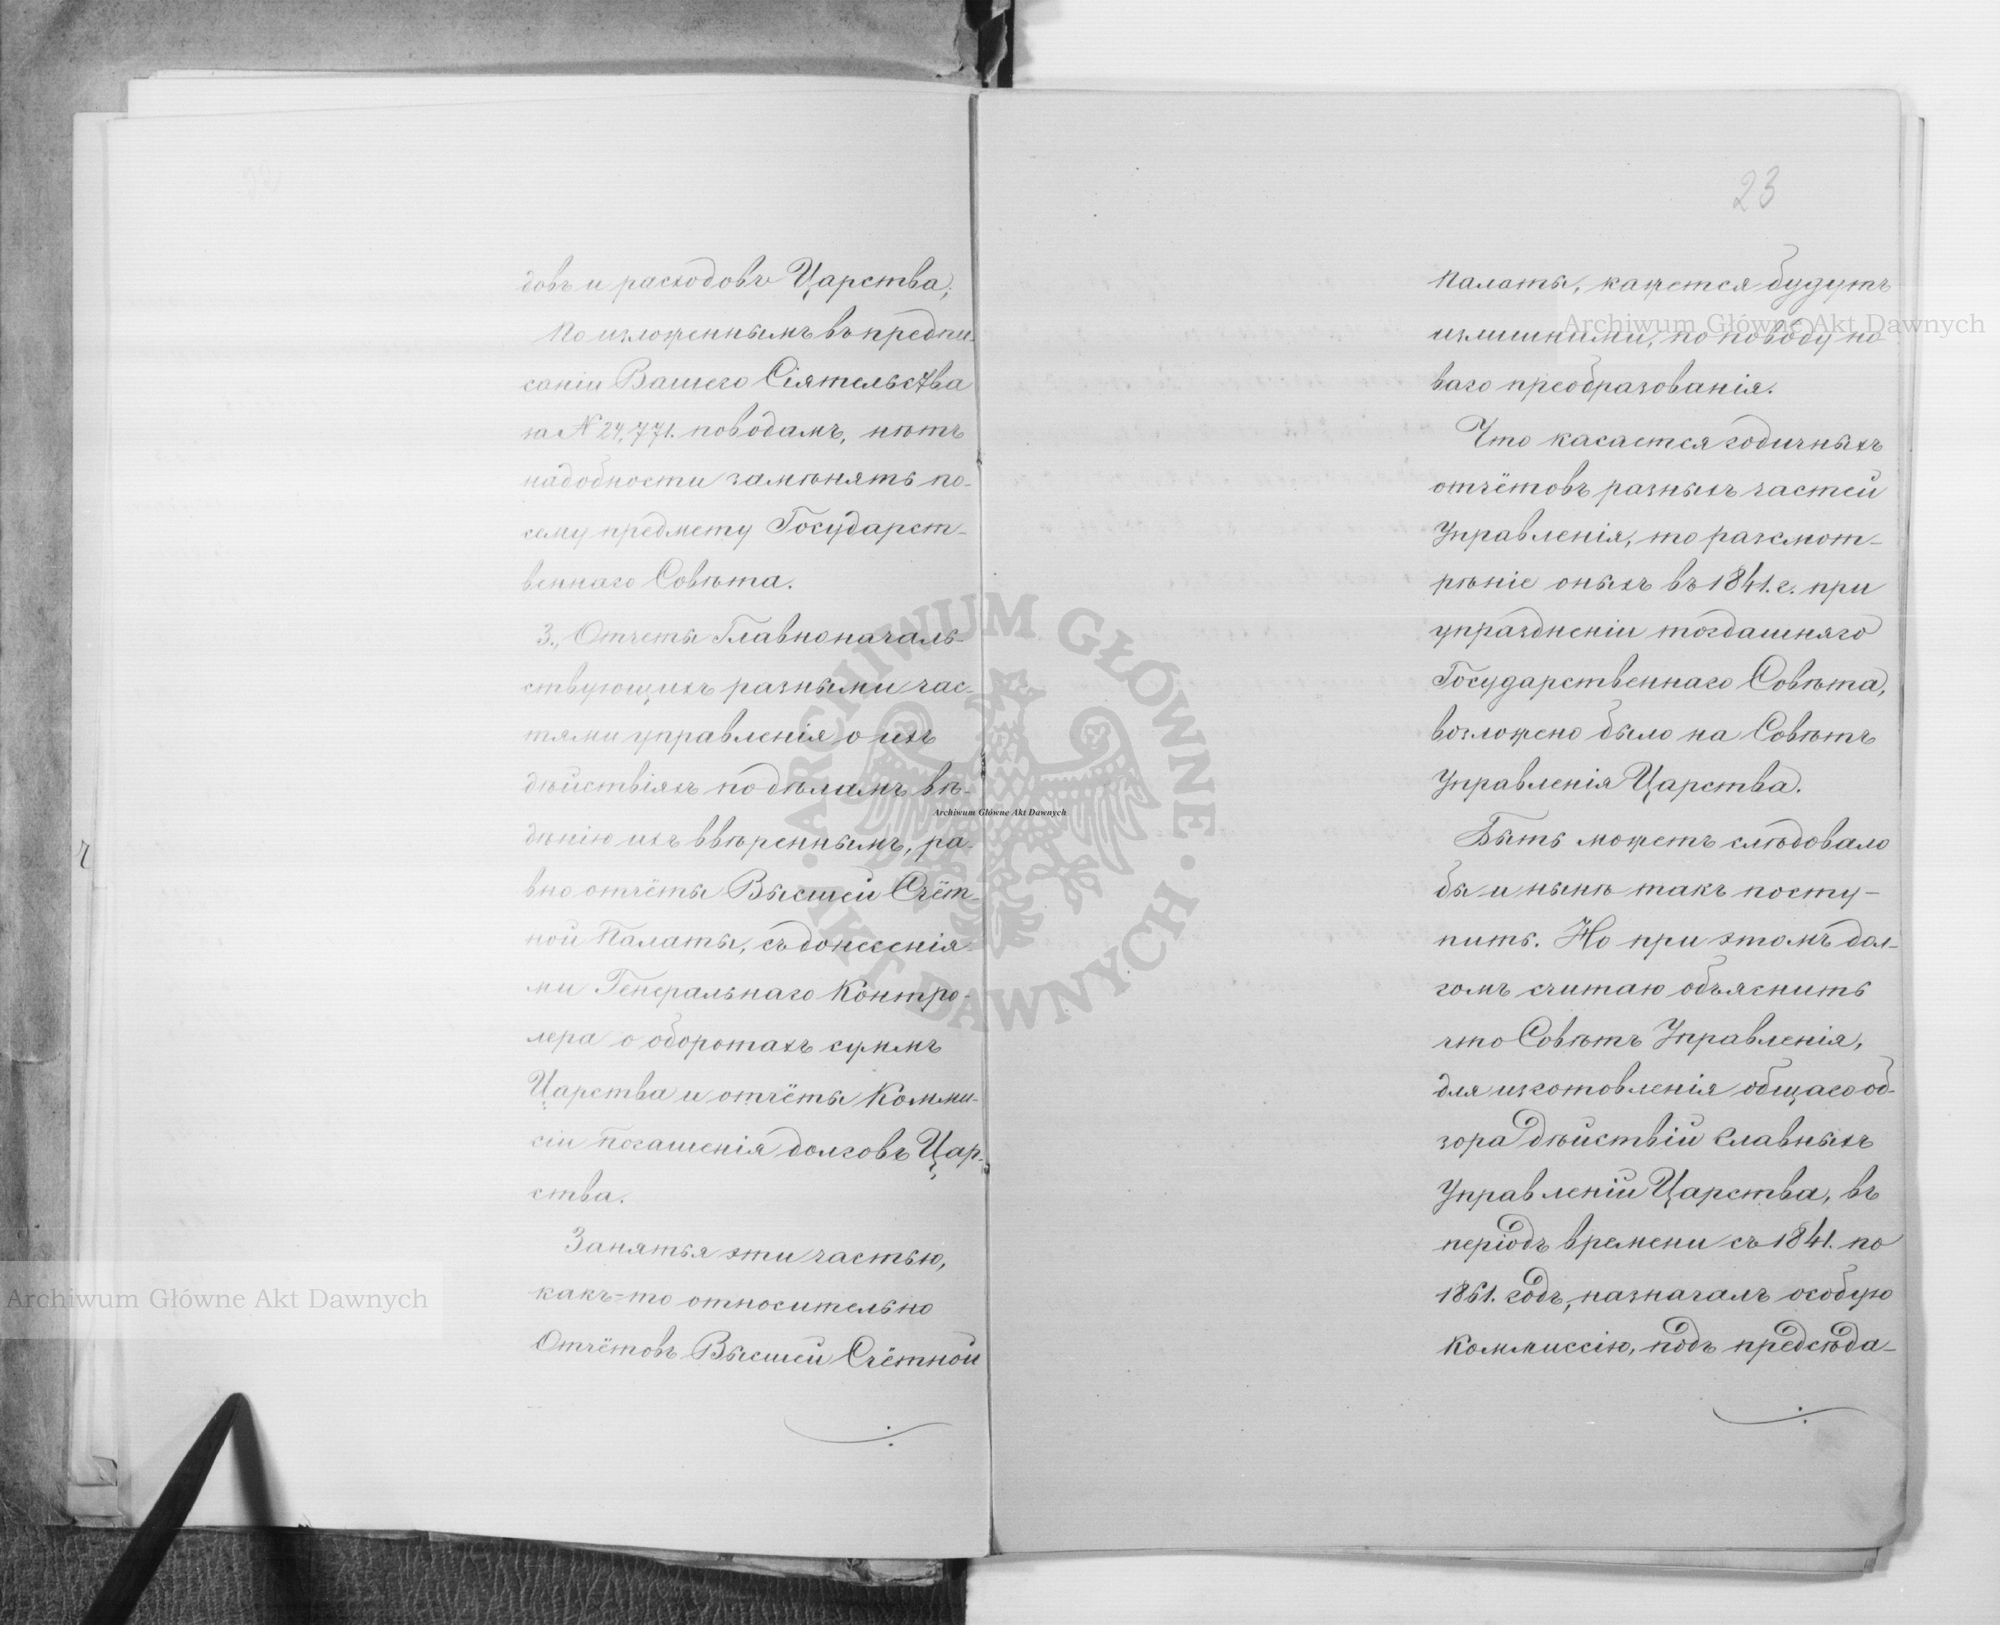 довъ и расходовъ Царства;
По изложеннымъ въ предпи-
саніи Вашего Сіятельства
на № 24,771. поводамъ, нѣтъ
надобности замѣнять по-
сему предмету Государст-
веннаго Совѣта.
3., Отчеты Главноначаль-
ствующихъ разными час-
тями управленія о ихъ
дѣйствіяхъ по дѣламъ вѣ-
дѣнію ихъ ввѣреннымъ, ра-
вно отчёты Высшей Счёт-
ной Палаты, съ донесенія-
ми Генеральнаго Контро-
лера о оборотахъ суммъ
Царства и отчёты Комми-
сіи погашенія долговъ Цар-
ства.
Занятья эти частью,
какъ-то относительно
Отчётовъ Высшей Счётной
23
Палаты, кажется будутъ
излишними, по поводу но
ваго преобразованія.
Что касается годичныхъ
отчётовъ разныхъ частей
Управленія, то разсмот-
рѣніе оныхъ въ 1841. г. при
упраздненіи тогдашняго
Государственнаго Совѣта,
возложено было на Совѣтъ
Управленія Царства.
Быть можетъ слѣдовало
бы и нынѣ такъ посту-
пить. Но при этомъ дол-
гомъ считаю объяснить
что Совѣтъ Управленія,
для изготовленія общаго об-
зора дѣйствій главныхъ
Управленій Царства, въ
періодъ времени съ 1841. по
1861. годъ, назначалъ особую
Коммиссію, подъ предсѣда-
Archiwum Główne Akt Dawnych
Archiwum Główne Akt Dawnych
Archiwum Główne Akt Dawnych
ARCHIWUM GŁÓWNE · AKT DAWNYCH ·